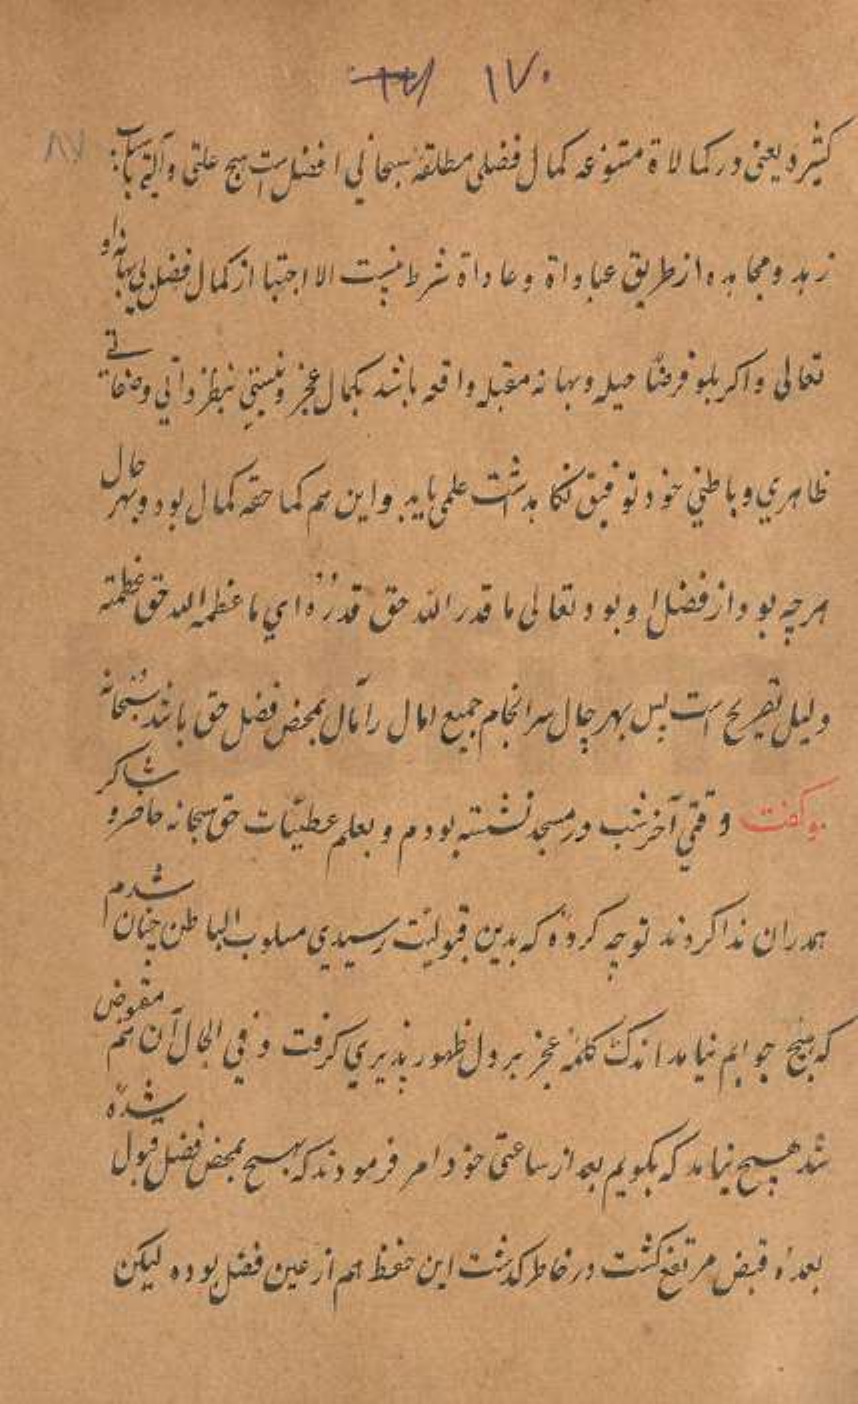 ۱۷۰
۸۷
کثیر و یعنی در کمالاة متنوعه کمال فضلی مطلقهٔ سبحانی افضل است هیچ علتی و آلتی
زهد و مجاهده از طریق عباداة و عاداة شرط نیست الا اجتبا از کمال فضل بی بهانه او
تعالی و اگر بلو فرضا حیله و بهانه مقبله واقعه باشد بکمال عجز و نیستی بنظر ذاتی و صفاتی
ظاهری و باطنی خود توفیق نگاهداشت علمی باید و این هم کما حقه کمال بود و بهر حال
هرچه بود از فضل او بود تعالی ما قدر الله حق قدره ای ما عظم الله حق عظمته
دلیل تصریح است پس بهر حال سرانجام جمیع امال را مآل بمحض فضل حق باشد سبحانه
و گفت وقتی آخر شب در مسجد نشسته بودم و بعلم عطیّات حق سبحانه حاضر و شاکر
همدران ندا کردند توجه کرده که بدین قبولیت رسیدی مسلوب الباطن چنان شدم
که هیچ جوابم نیامد اندک کلمهٔ عجز بر دل ظهور پذیری گرفت و فی الحال آن هم مقبوض
شد هیچ نیامد که بگویم بعد از ساعتی خود امر فرمودند که بمحض فضل قبول شده
بعده قبض مرتفع گشت در خاطر گذشت این حفظ هم از عین فضل بوده لیکن